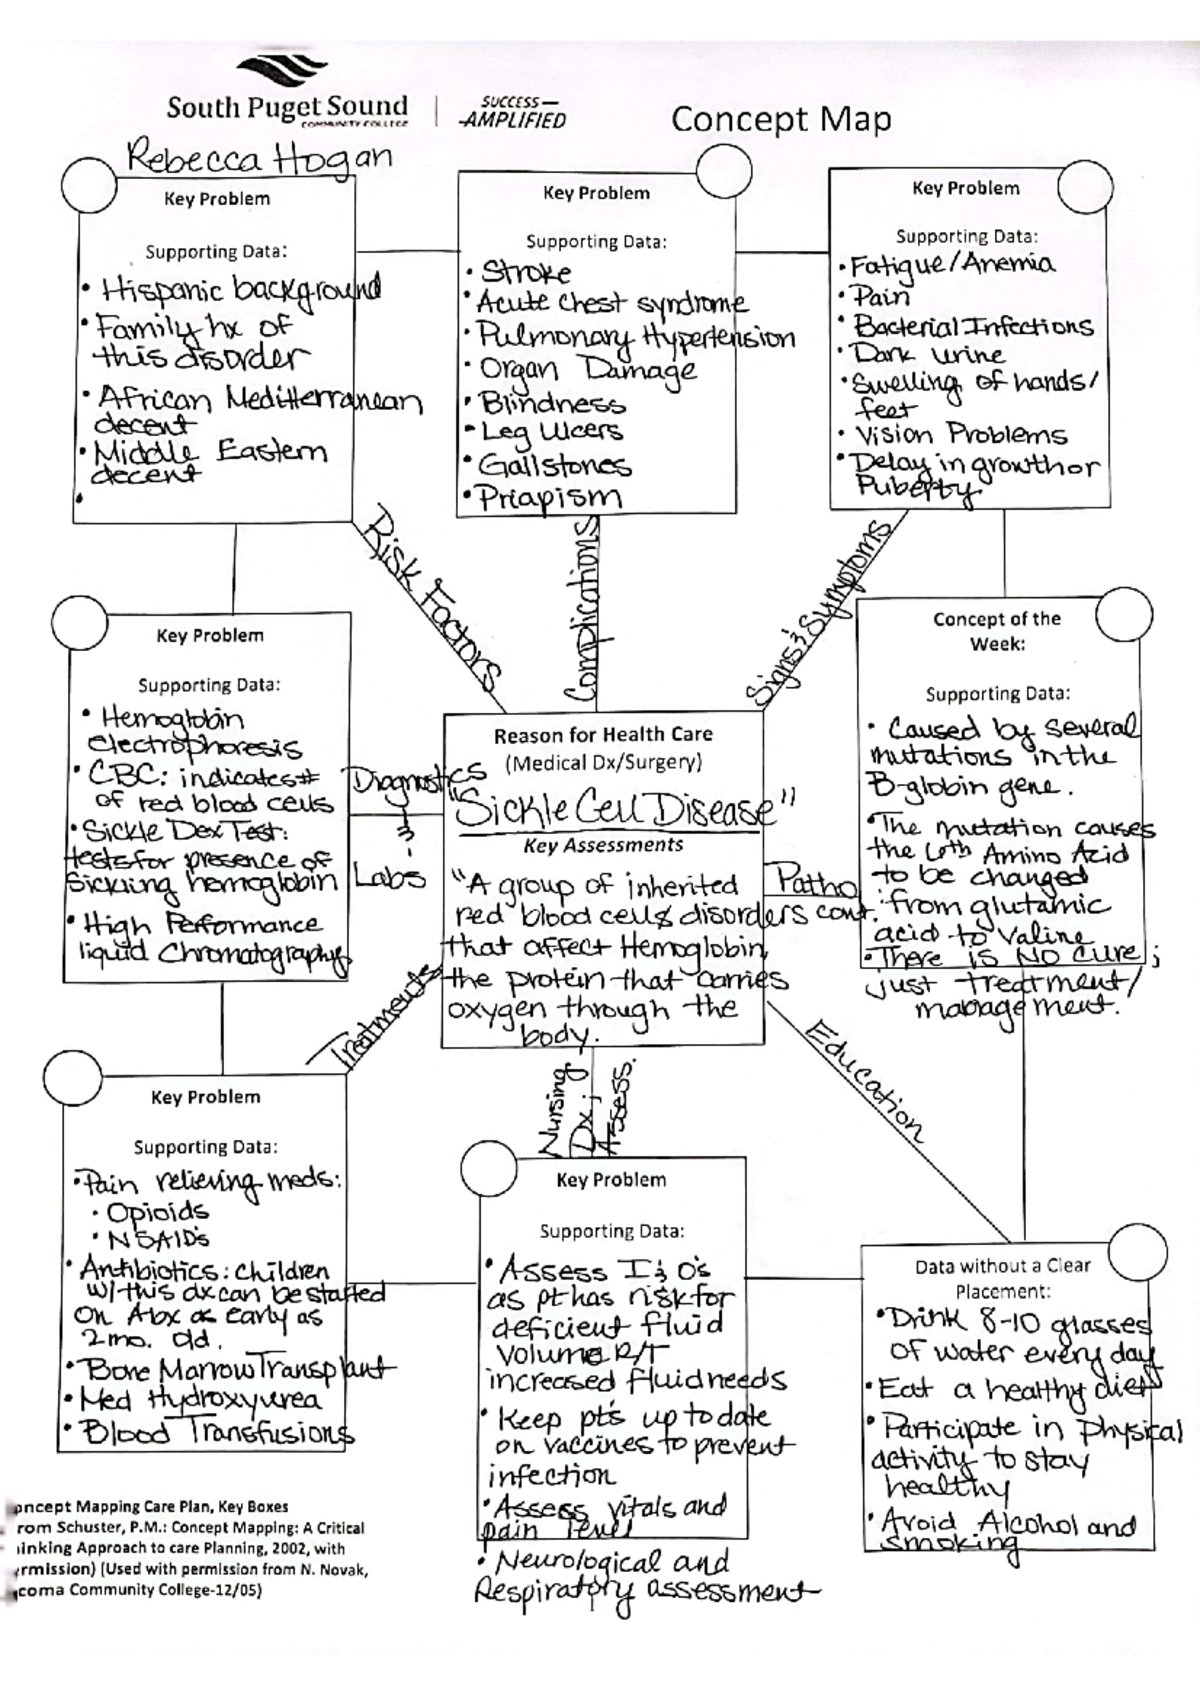 South Puget Sound
COMMUNITY COLLEGE
SUCCESS—
AMPLIFIED
Concept Map
Rebecca Hogan
Key Problem
Supporting Data:
• Hispanic background
• Family hx of
this disorder
• African Meditterranean
decent
• Middle Eastern
decent
•
Key Problem
Supporting Data:
• Stroke
• Acute chest syndrome
• Pulmonary Hypertension
• Organ Damage
• Blindness
• Leg Ulcers
• Gallstones
• Priapism
Key Problem
Supporting Data:
• Fatigue/Anemia
• Pain
• Bacterial Infections
• Dark urine
• Swelling of hands/
feet
• Vision Problems
• Delay in growth or
Puberty
Risk Factors
Complications
Signs & Symptoms
Key Problem
Supporting Data:
• Hemoglobin
electrophoresis
• CBC: indicates #
of red blood cells
• Sickle Dex Test:
tests for presence of
sickling hemoglobin
• High Performance
liquid Chromatography
Diagnostics
&
Labs
Reason for Health Care
(Medical Dx/Surgery)
"Sickle Cell Disease"
Key Assessments
"A group of inherited
red blood cells disorders
that affect Hemoglobin,
the protein that carries
oxygen through the
body.
Patho
cont.
Concept of the
Week:
Supporting Data:
• Caused by several
mutations in the
B-globin gene.
• The mutation causes
the 6th Amino Acid
to be changed
from glutamic
acid to Valine
• There is NO cure;
just treatment/
management.
Treatments
Nursing
Dx;
Assess.
Education
Key Problem
Supporting Data:
• Pain relieving meds:
• Opioids
• NSAIDs
• Antibiotics: children
w/this dx can be started
on Abx as early as
2 mo. old.
• Bone Marrow Transplant
• Med Hydroxyurea
• Blood Transfusions
Key Problem
Supporting Data:
• Assess I & O's
as pt has risk for
deficient fluid
Volume R/T
increased fluid needs
• Keep pt's up to date
on vaccines to prevent
infection
• Assess vitals and
pain level
• Neurological and
Respiratory assessment
Data without a Clear
Placement:
• Drink 8-10 glasses
of water every day
• Eat a healthy diet
• Participate in Physical
activity to stay
healthy
• Avoid Alcohol and
smoking
oncept Mapping Care Plan, Key Boxes
rom Schuster, P.M.: Concept Mapping: A Critical
inking Approach to care Planning, 2002, with
rmission) (Used with permission from N. Novak,
coma Community College-12/05)